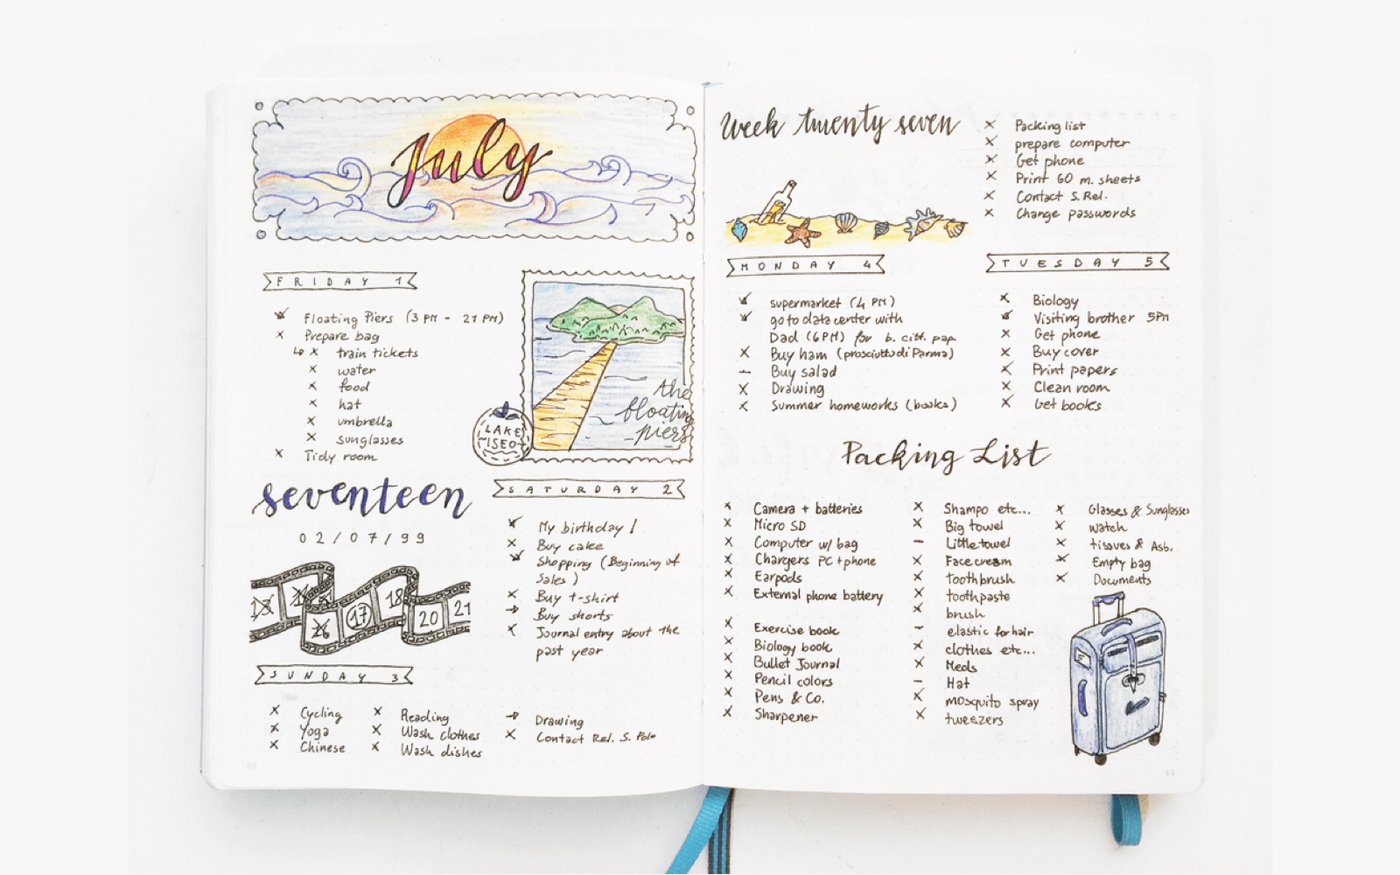 July
FRIDAY 1
Floating Piers (3 PM - 21 PM)
Prepare bag
train tickets
water
food
hat
umbrella
sunglasses
Tidy room
the
floating
piers
LAKE
ISEO
seventeen
02/07/99
16
17
18
20
21
SATURDAY 2
My birthday!
Buy cake
Shopping (Beginning of
Sales)
Buy t-shirt
Buy shorts
Journal entry about the
past year
SUNDAY 3
Cycling
Yoga
Chinese
Reading
Wash clothes
Wash dishes
Drawing
Contact Rel. S. Polo
Week twenty seven
Packing list
prepare computer
Get phone
Print 60 m. sheets
Contact S. Rel.
Change passwords
MONDAY 4
supermarket (4 PM)
go to data center with
Dad (6PM) for b. citt. pap.
Buy ham (prosciutto di Parma)
Buy salad
Drawing
Summer homeworks (books)
TUESDAY 5
Biology
Visiting brother 5PM
Get phone
Buy cover
Print papers
Clean room
Get books
Packing List
Camera + batteries
Micro SD
Computer w/ bag
Chargers PC + phone
Earpods
External phone battery
Exercise book
Biology book
Bullet Journal
Pencil colors
Pens & Co.
Sharpener
Shampo etc...
Big towel
Little towel
Face cream
toothbrush
toothpaste
brush
elastic for hair
clothes etc...
Meds
Hat
mosquito spray
tweezers
Glasses & Sunglasses
watch
tissues & Asb.
Empty bag
Documents
61